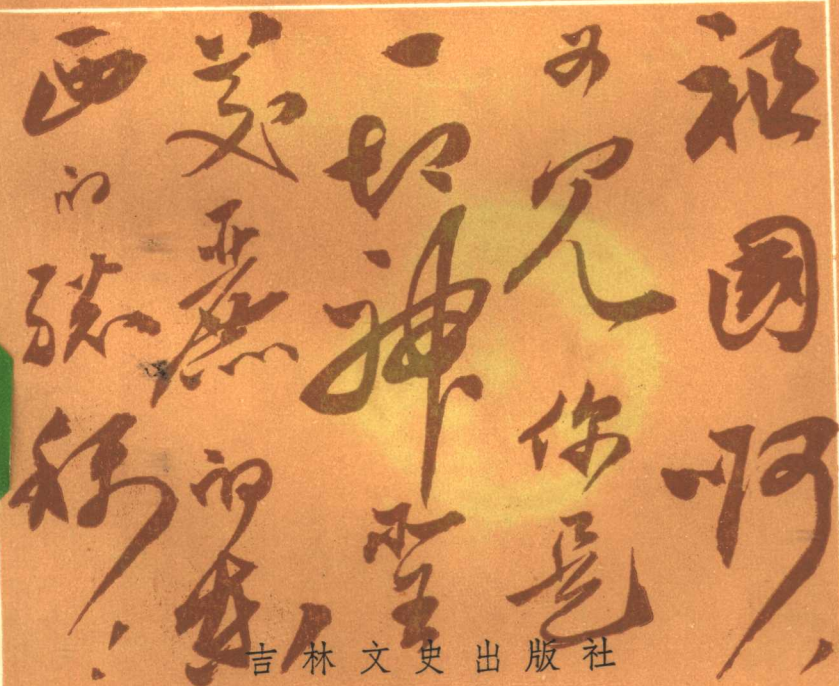 祖國啊，
你是
一切神聖
美麗的東
西的總稱！
吉林文史出版社